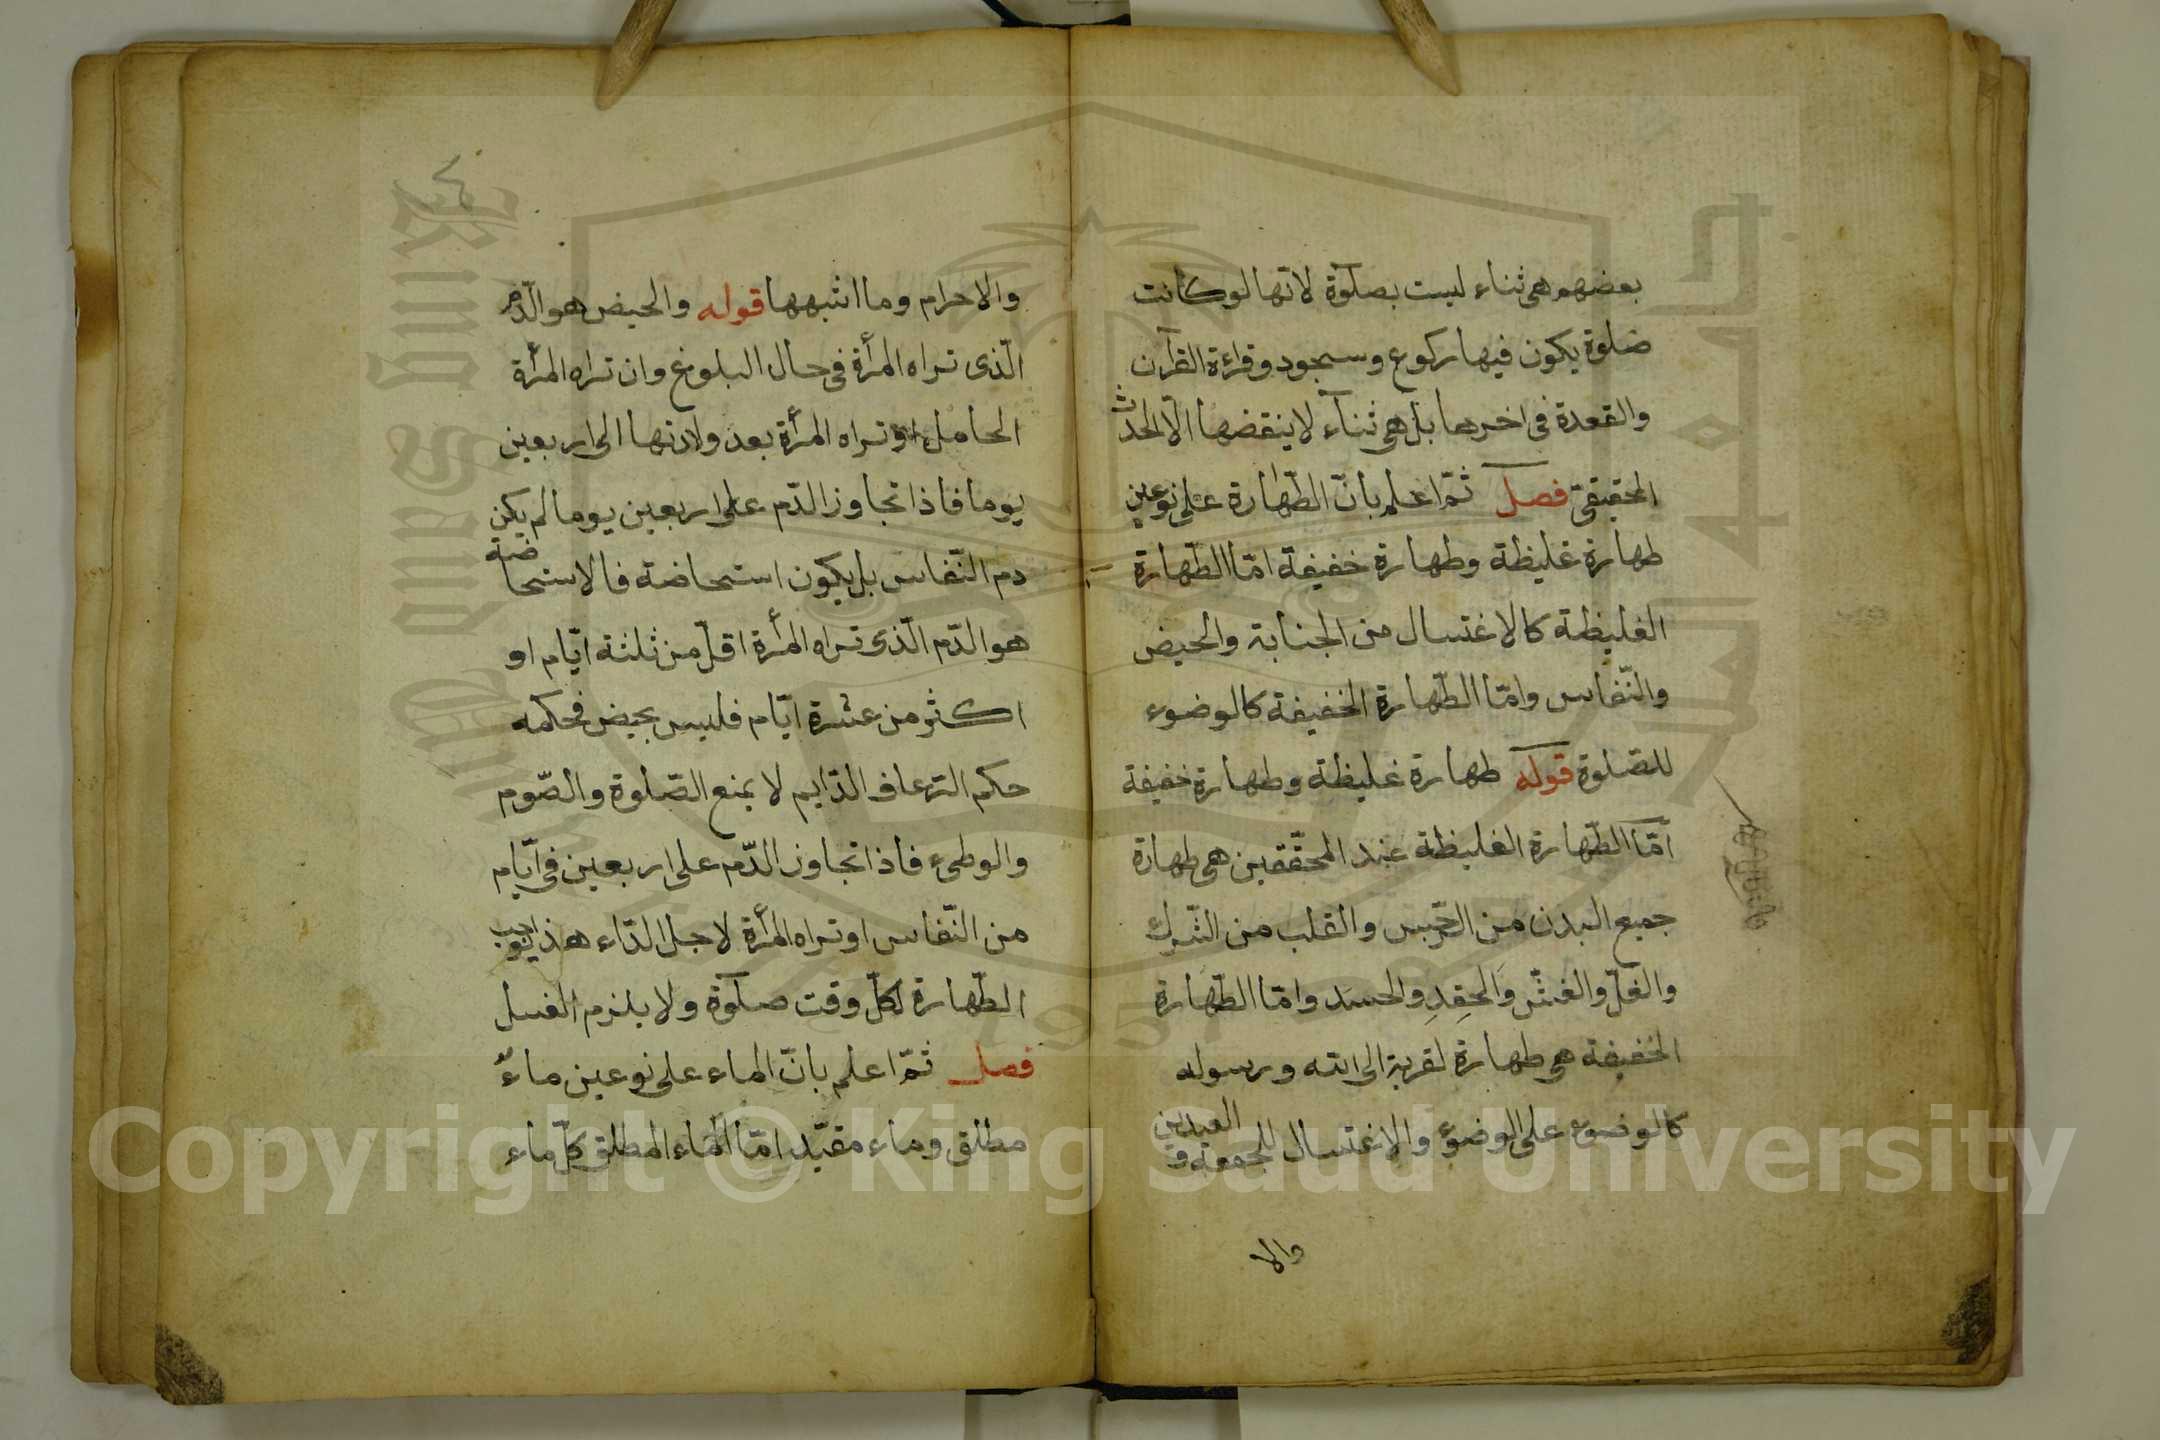 بعضهم هى ثناء ليست بصلوة لانها لو كانت
صلوة يكون فيها ركوع وسجود وقراءة القرآن
والقعدة فى اخرها بل هى ثناء لا ينقضها الّا الحدث
الحقيقىّ فصل ثمّ اعلم بانّ الطّهارة على نوعين
طهارة غليظة وطهارة خفيفة امّا الطّهارة
الغليظة كالاغتسال من الجنابة والحيض
والنّفاس وامّا الطّهارة الخفيفة كالوضوء
للصّلوة قوله طهارة غليظة وطهارة خفيفة
امّا الطّهارة الغليظة عند المحقّقين هى طهارة
جميع البدن من النّجس والقلب من الشّرك
والغلّ والغشّ والحقد والحسد وامّا الطّهارة
الخفيفة هى طهارة لقربة الى الله ورسوله
كالوضوء على الوضوء والاغتسال للجمعة و العيدين
والا
والاحرام وما اشبهها قوله والحيض هو الدّم
الّذى تراه المرأة فى حال البلوغ وان تراه المرأة
الحامل او تراه المرأة بعد ولادتها الى اربعين
يوما فاذا تجاوز الدّم على اربعين يوما لم يكن
دم النّفاس بل يكون استحاضة فالاستحاضة
هو الدّم الّذى تراه المرأة اقلّ من ثلثة ايّام او
اكثر من عشرة ايّام فليس بحيض فحكمه
حكم الرّعاف الدّايم لا يمنع الصّلوة والصّوم
والوطىء فاذا تجاوز الدّم على اربعين فى ايّام
من النّفاس او تراه المرأة لاجل الدّاء هذ يوجب
الطّهارة لكلّ وقت صلوة ولا يلزم الغسل
فصل ثمّ اعلم بانّ الماء على نوعين ماءٌ
مطلق وماء مقيّد امّا الماء المطلق كلّ ماء
Copyright © King Saud University
1957